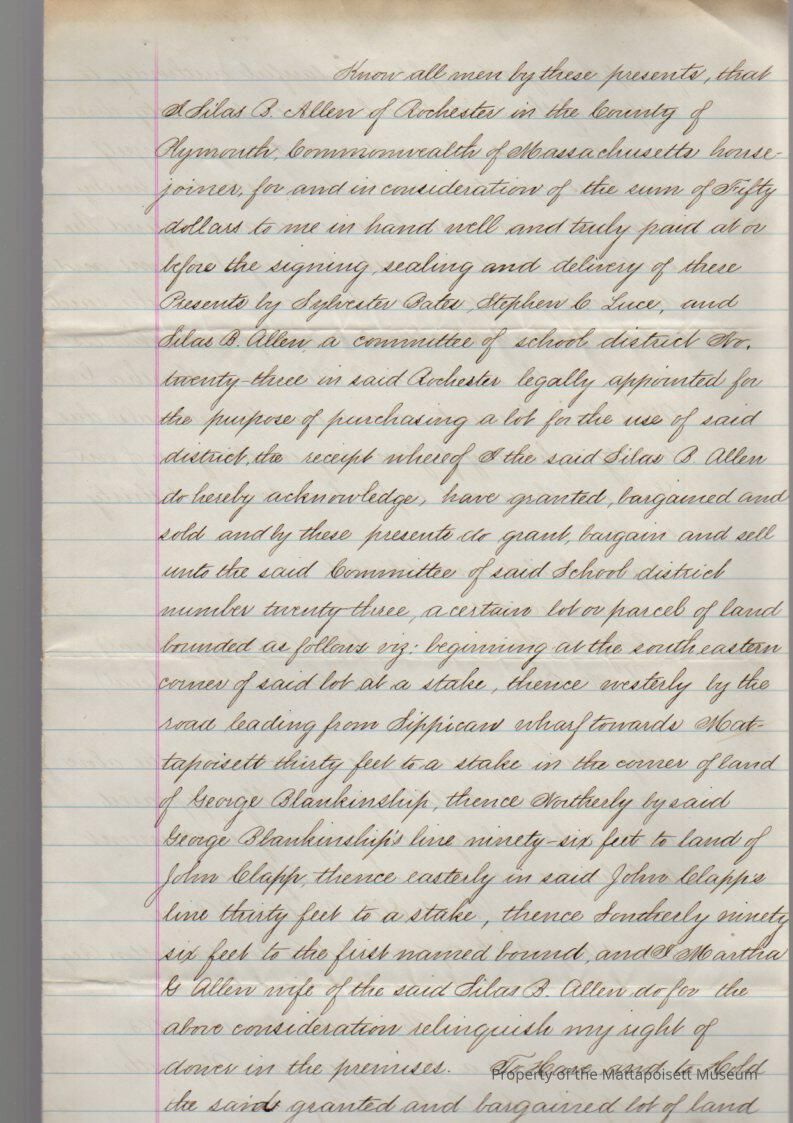 Know all men by these presents, that
I Silas B. Allen of Rochester in the County of
Plymouth, Commonwealth of Massachusetts house-
joiner, for and in consideration of the sum of Fifty
dollars to me in hand well and truly paid at or
before the signing, sealing and delivery of these
Presents by Sylvester Bates, Stephen C Luce, and
Silas B. Allen, a committee of school district No.
twenty-three in said Rochester legally appointed for
the purpose of purchasing a lot for the use of said
district, the receipt whereof I the said Silas B. Allen
do hereby acknowledge, have granted, bargained and
sold and by these presents do grant, bargain and sell
unto the said Committee of said School district
number twenty-three, a certain lot or parcel of land
bounded as follows viz: beginning at the south eastern
corner of said lot at a stake, thence westerly by the
road leading from Sippican wharf towards Mat-
tapoisett thirty feet to a stake in the corner of land
of George Blankinship, thence Northerly by said
George Blankinship's line ninety-six feet to land of
John Clapp, thence easterly in said John Clapps
line thirty feet to a stake, thence Southerly ninety
six feet to the first named bound, and I Martha
G Allen wife of the said Silas B. Allen do for the
above consideration relinquish my right of
dower in the premises. To Have and to Hold
Property of the Mattapoisett Museum
the said granted and bargained lot of land